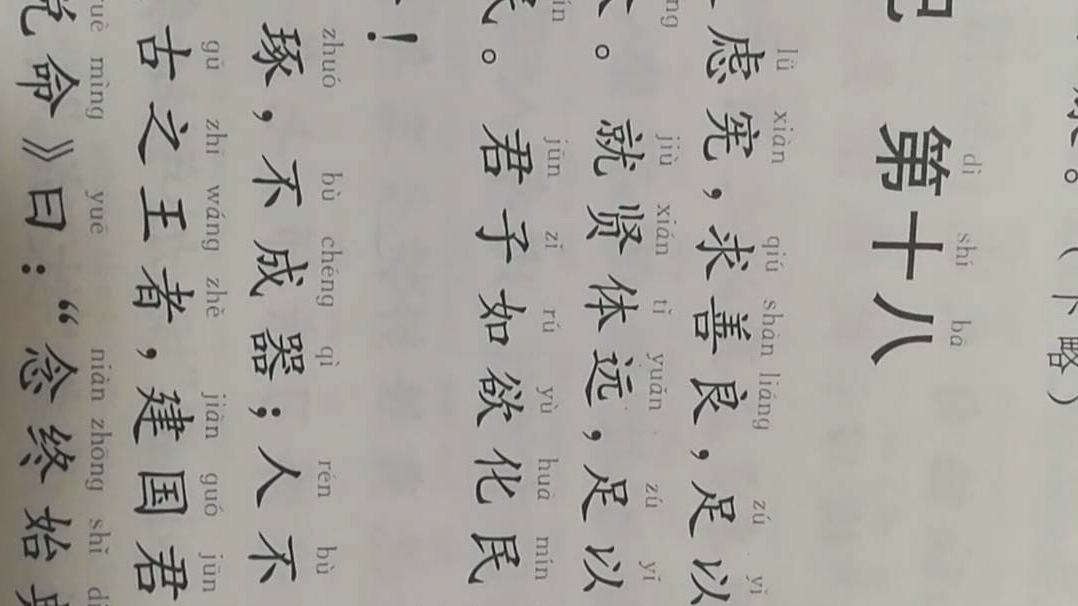 。（下略）
dì shí bā
记 第十八
lǜ xiàn qiú shàn liáng zú yǐ
虑宪，求善良，足以
jiù xián tǐ yuǎn zú yǐ
。就贤体远，足以
jūn zǐ rú yù huà mín
民。君子如欲化民
！
zhuó bù chéng qì rén bù
琢，不成器；人不
gǔ zhī wáng zhě jiàn guó jūn
古之王者，建国君
yuè mìng yuē niàn zhōng shǐ
说命》曰：“念终始